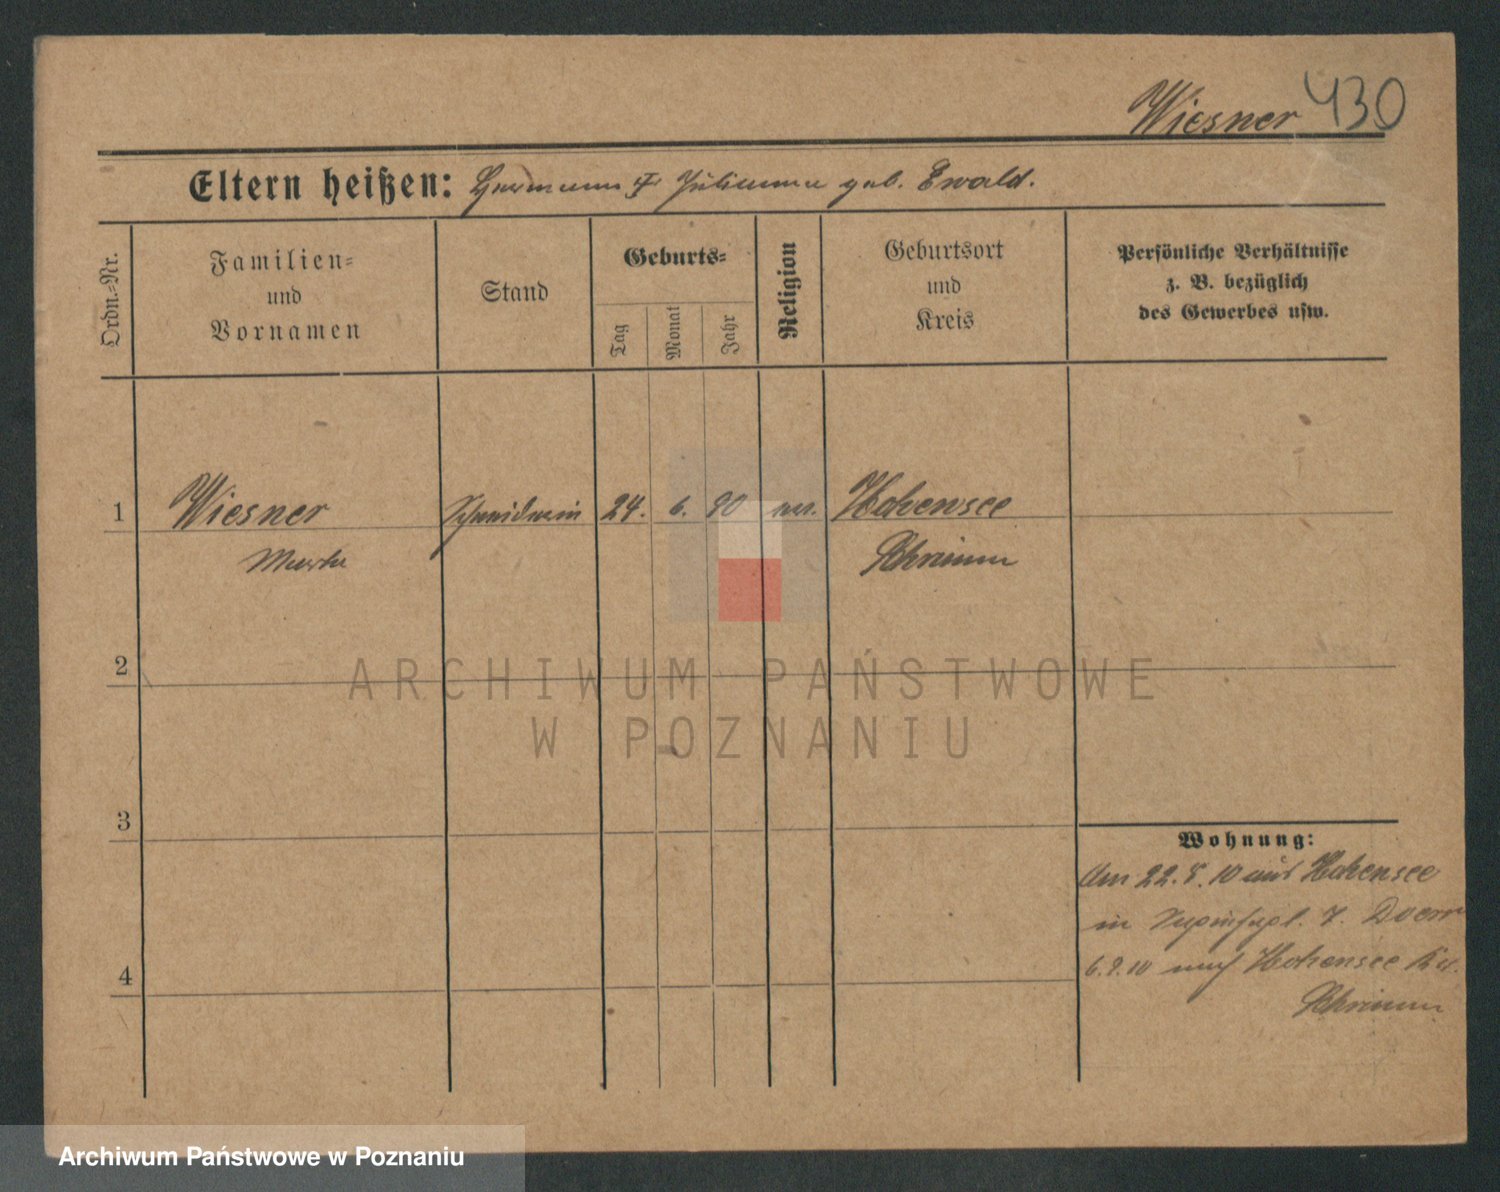 Wiesner 430
Eltern heißen: Hermann & Julianna geb. Ewald.
Ordn.=Nr.
Familien=
und
Vornamen
Stand
Geburts=
Tag
Monat
Jahr
Religion
Geburtsort
und
Kreis
Persönliche Verhältnisse
z. B. bezüglich
des Gewerbes usw.
1 Wiesner Schneiderin 24. 6. 90 Hohensee
Martha Schrimm
2
3
4
Wohnung:
Am 22. 5. 10 aus Hohensee
in 7. Doerr
6. 9. 10 nach Hohensee Kr.
Schrimm
ARCHIWUM PAŃSTWOWE
W POZNANIU
Archiwum Państwowe w Poznaniu